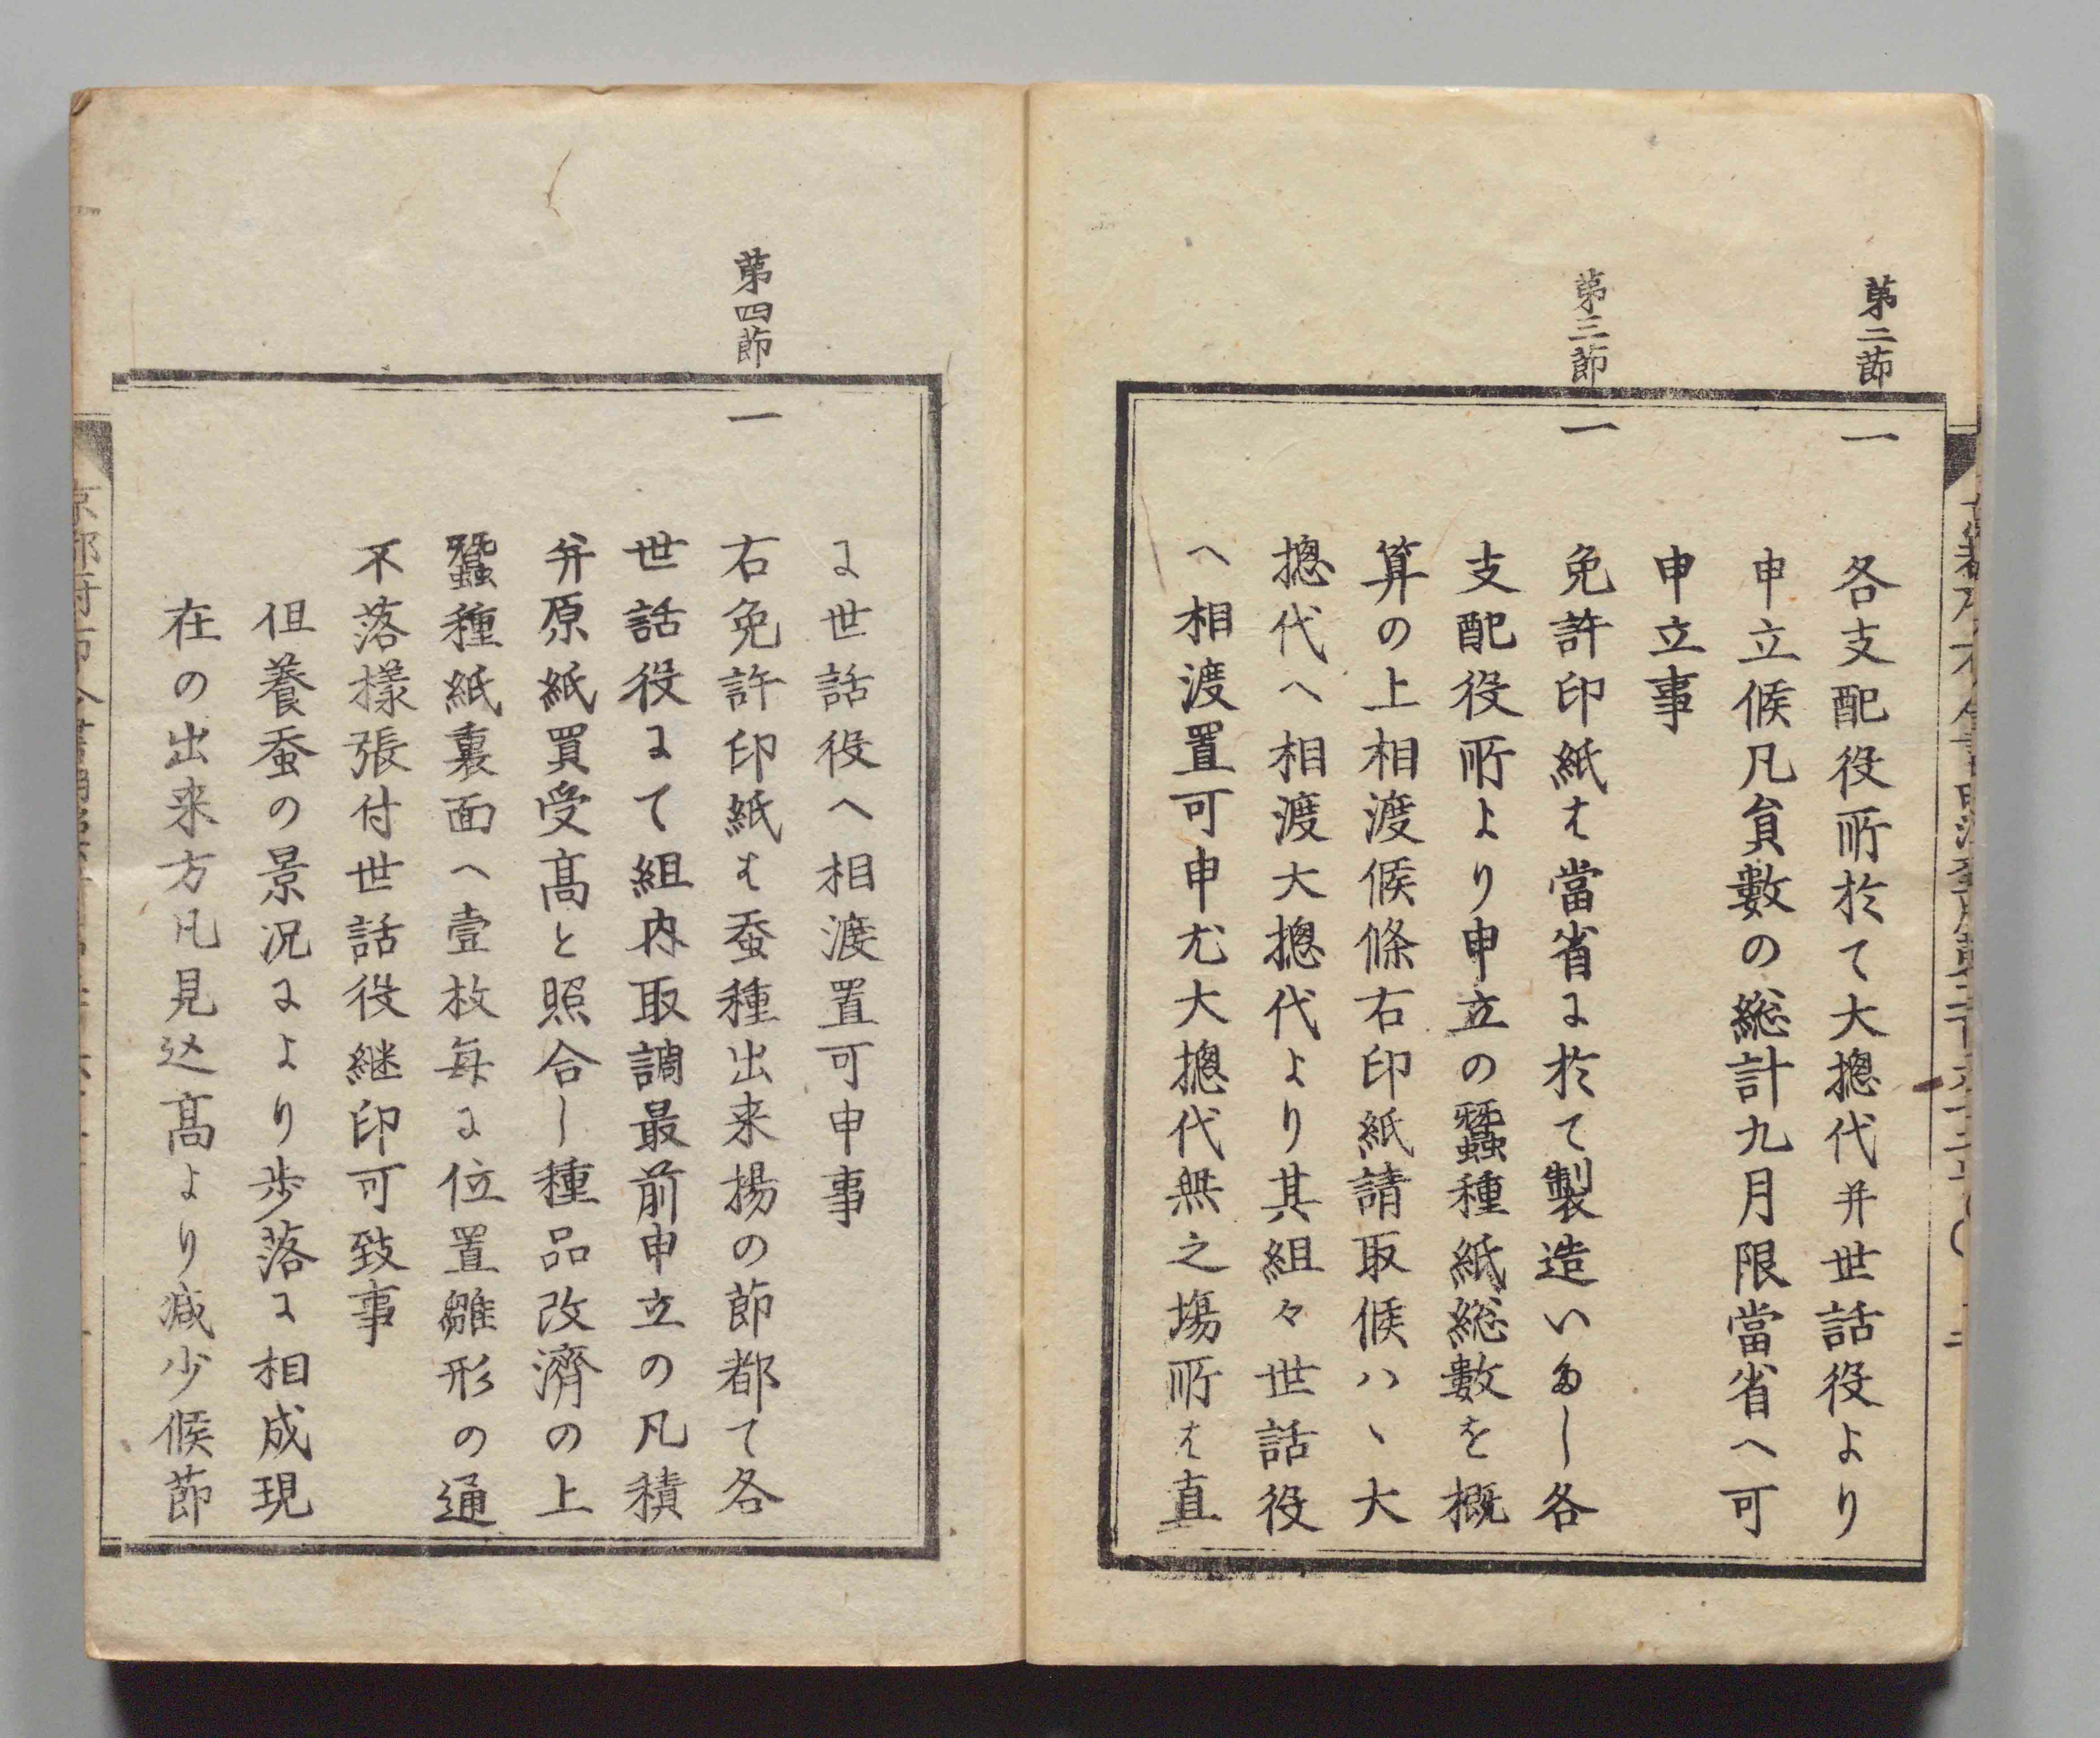 第二節
一
各支配役所於て大揔代并世話役より
申立候凡員數の総計九月限當省へ可
申立事
第三節
一
免許印紙は當省に於て製造いたし各
支配役所より申立の蠶種紙総數を概
算の上相渡候條右印紙請取候ハヽ大
揔代へ相渡大揔代より其組々世話役
へ相渡置可申尤大揔代無之塲所は直
に世話役へ相渡置可申事
第四節
一
右免許印紙は蚕種出来揚の節都て各
世話役にて組内取調最前申立の凡積
并原紙買受髙と照合し種品改濟の上
蠶種紙裏面へ壹枚毎に位置雛形の通
不落様張付世話役継印可致事
但養蚕の景况により歩落に相成現
在の出来方凡見込髙より减少候節